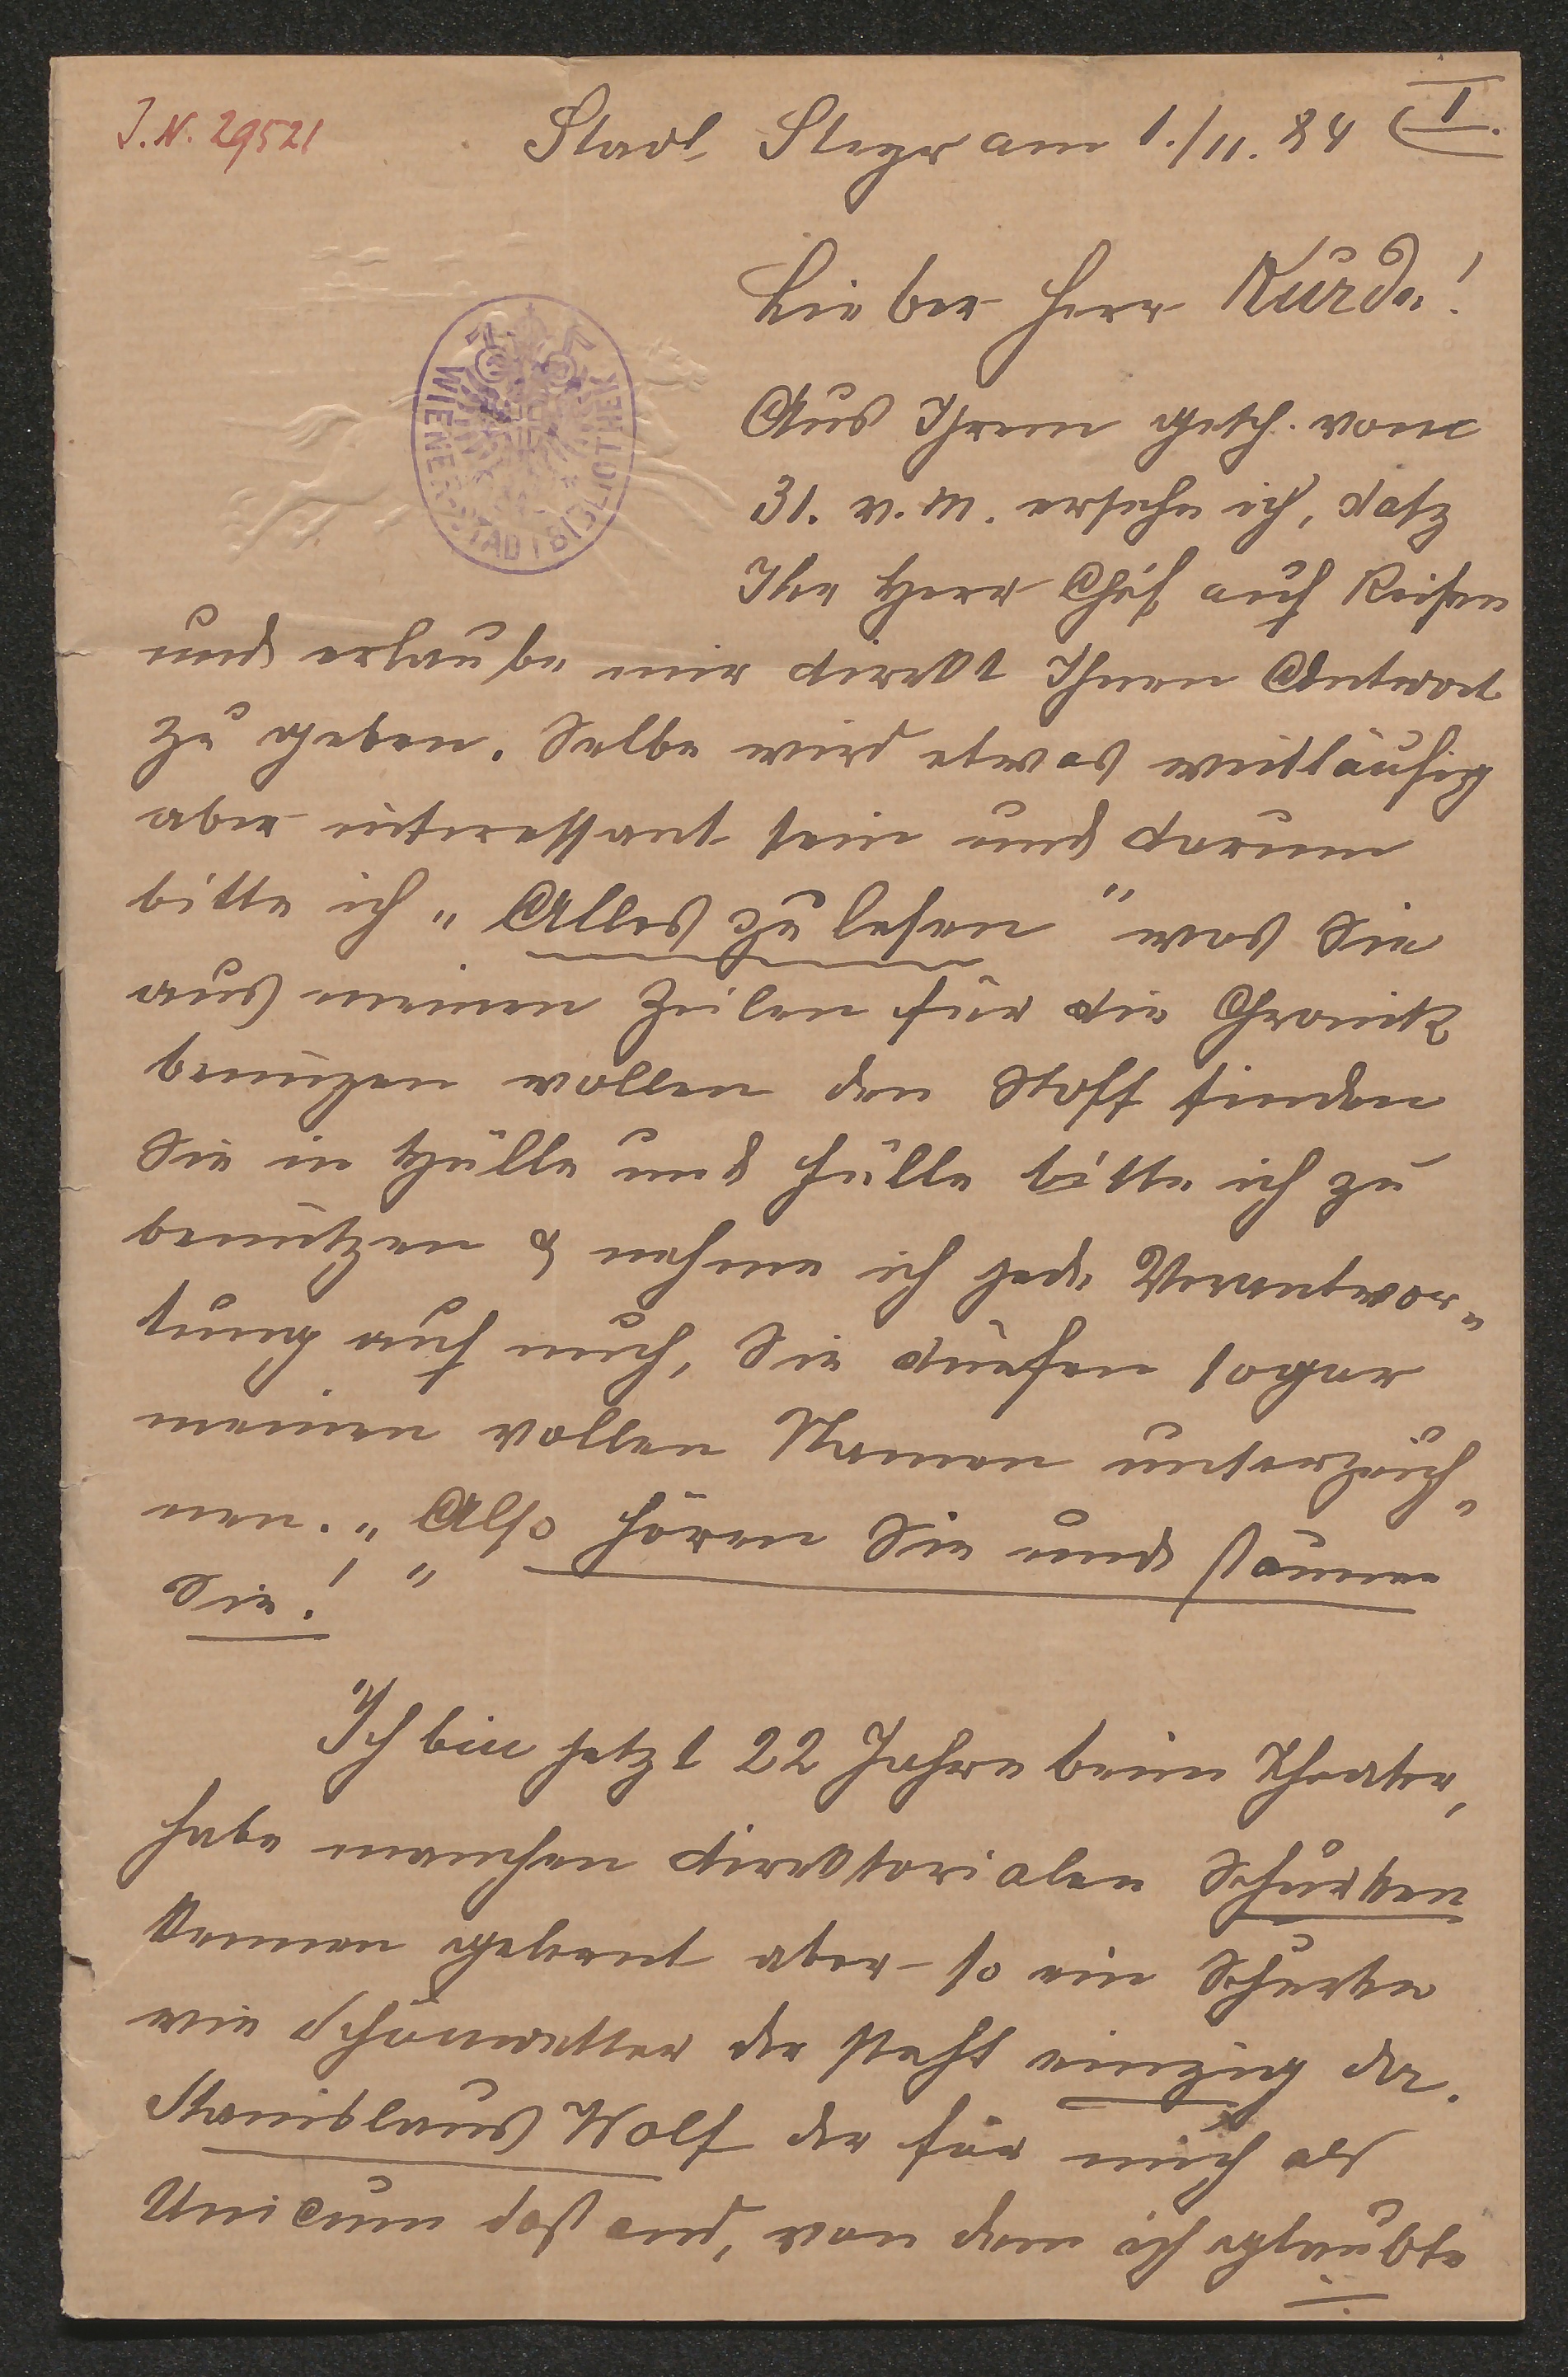 J.N. 29521
Stadt Steyr am 1./11. 84
I.
Lieber Herr Kürde!
WIENER STADTBIBLIOTHEK
Aus Ihrem gesch. vom
31. v. M. ersehe ich, dasz
Ihr Herr Chéf auf Reisen
und erlaube mir direkt Ihnen Antwort
zu geben. Selbe wird etwas weitläufig
aber interessant sein und darum
bitte ich „Alles zu lesen" was Sie
aus meinen Zeilen für die Chronik
benüzen wollen den Stoff finden
Sie in Hülle und Fülle bitte ich zu
benützen & nehme ich jede Verantwor-
tung auf mich, Sie dürfen sogar
meinen vollen Namen unterzeich-
nen. „Also hören Sie und staunen
Sie!"
Ich bin jetzt 22 Jahre beim Theater,
habe manchen direktorialen Schurken
kennen gelernt aber so ein Schurke
wie Schönwetter der steht einzig da.
Stanislaus Wolf der für mich als
Unicum dastand, von dem ich glaubte